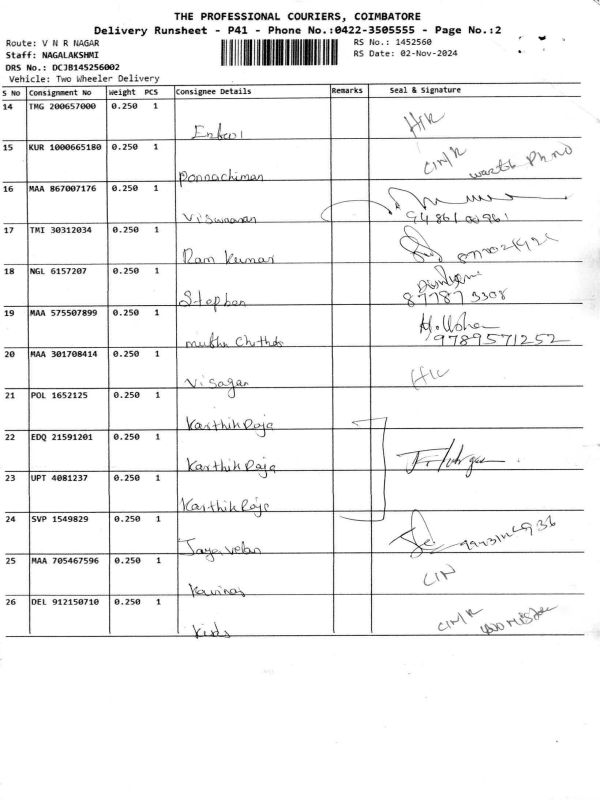 THE PROFESSIONAL COURIERS, COIMBATORE
Delivery Runsheet - P41 - Phone No.:0422-3505555 - Page No.:2
Route: V N R NAGAR RS No.: 1452560
Staff: NAGALAKSHMI RS Date: 02-Nov-2024
DRS No.: DCJB145256002
Vehicle: Two Wheeler Delivery
S No Consignment No Weight PCS Consignee Details Remarks Seal & Signature
14 TMG 200657000 0.250 1
15 KUR 1000665180 0.250 1
Ponnachiman
16 MAA 867007176 0.250 1
17 TMI 30312034 0.250 1
Ram Kumar
18 NGL 6157207 0.250 1
Stephen
87787 3308
19 MAA 575507899 0.250 1
9789571252
20 MAA 301708414 0.250 1
Visagan
21 POL 1652125 0.250 1
Karthik Raja
22 EDQ 21591201 0.250 1
Karthik Raja
23 UPT 4081237 0.250 1
Karthik Raja
24 SVP 1549829 0.250 1
Jaya velan
25 MAA 705467596 0.250 1
26 DEL 912150710 0.250 1
Kids